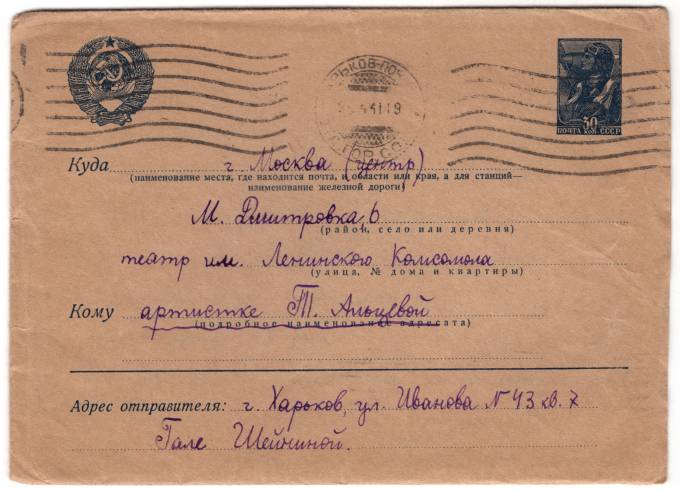 30
ПОЧТА КОП. СССР
41 19
Куда г. Москва (центр)
(наименование места, где находится почта, и области или края, а для станций—
наименование железной дороги)
М. Дмитровка, 6
(район, село или деревня)
театр им. Ленинского Комсомола
(улица, № дома и квартиры)
Кому артистке Т. Альцевой
(подробное наименование адресата)
Адрес отправителя: г. Харьков, ул. Иванова N 43 кв. 7
Гале Шейниной.